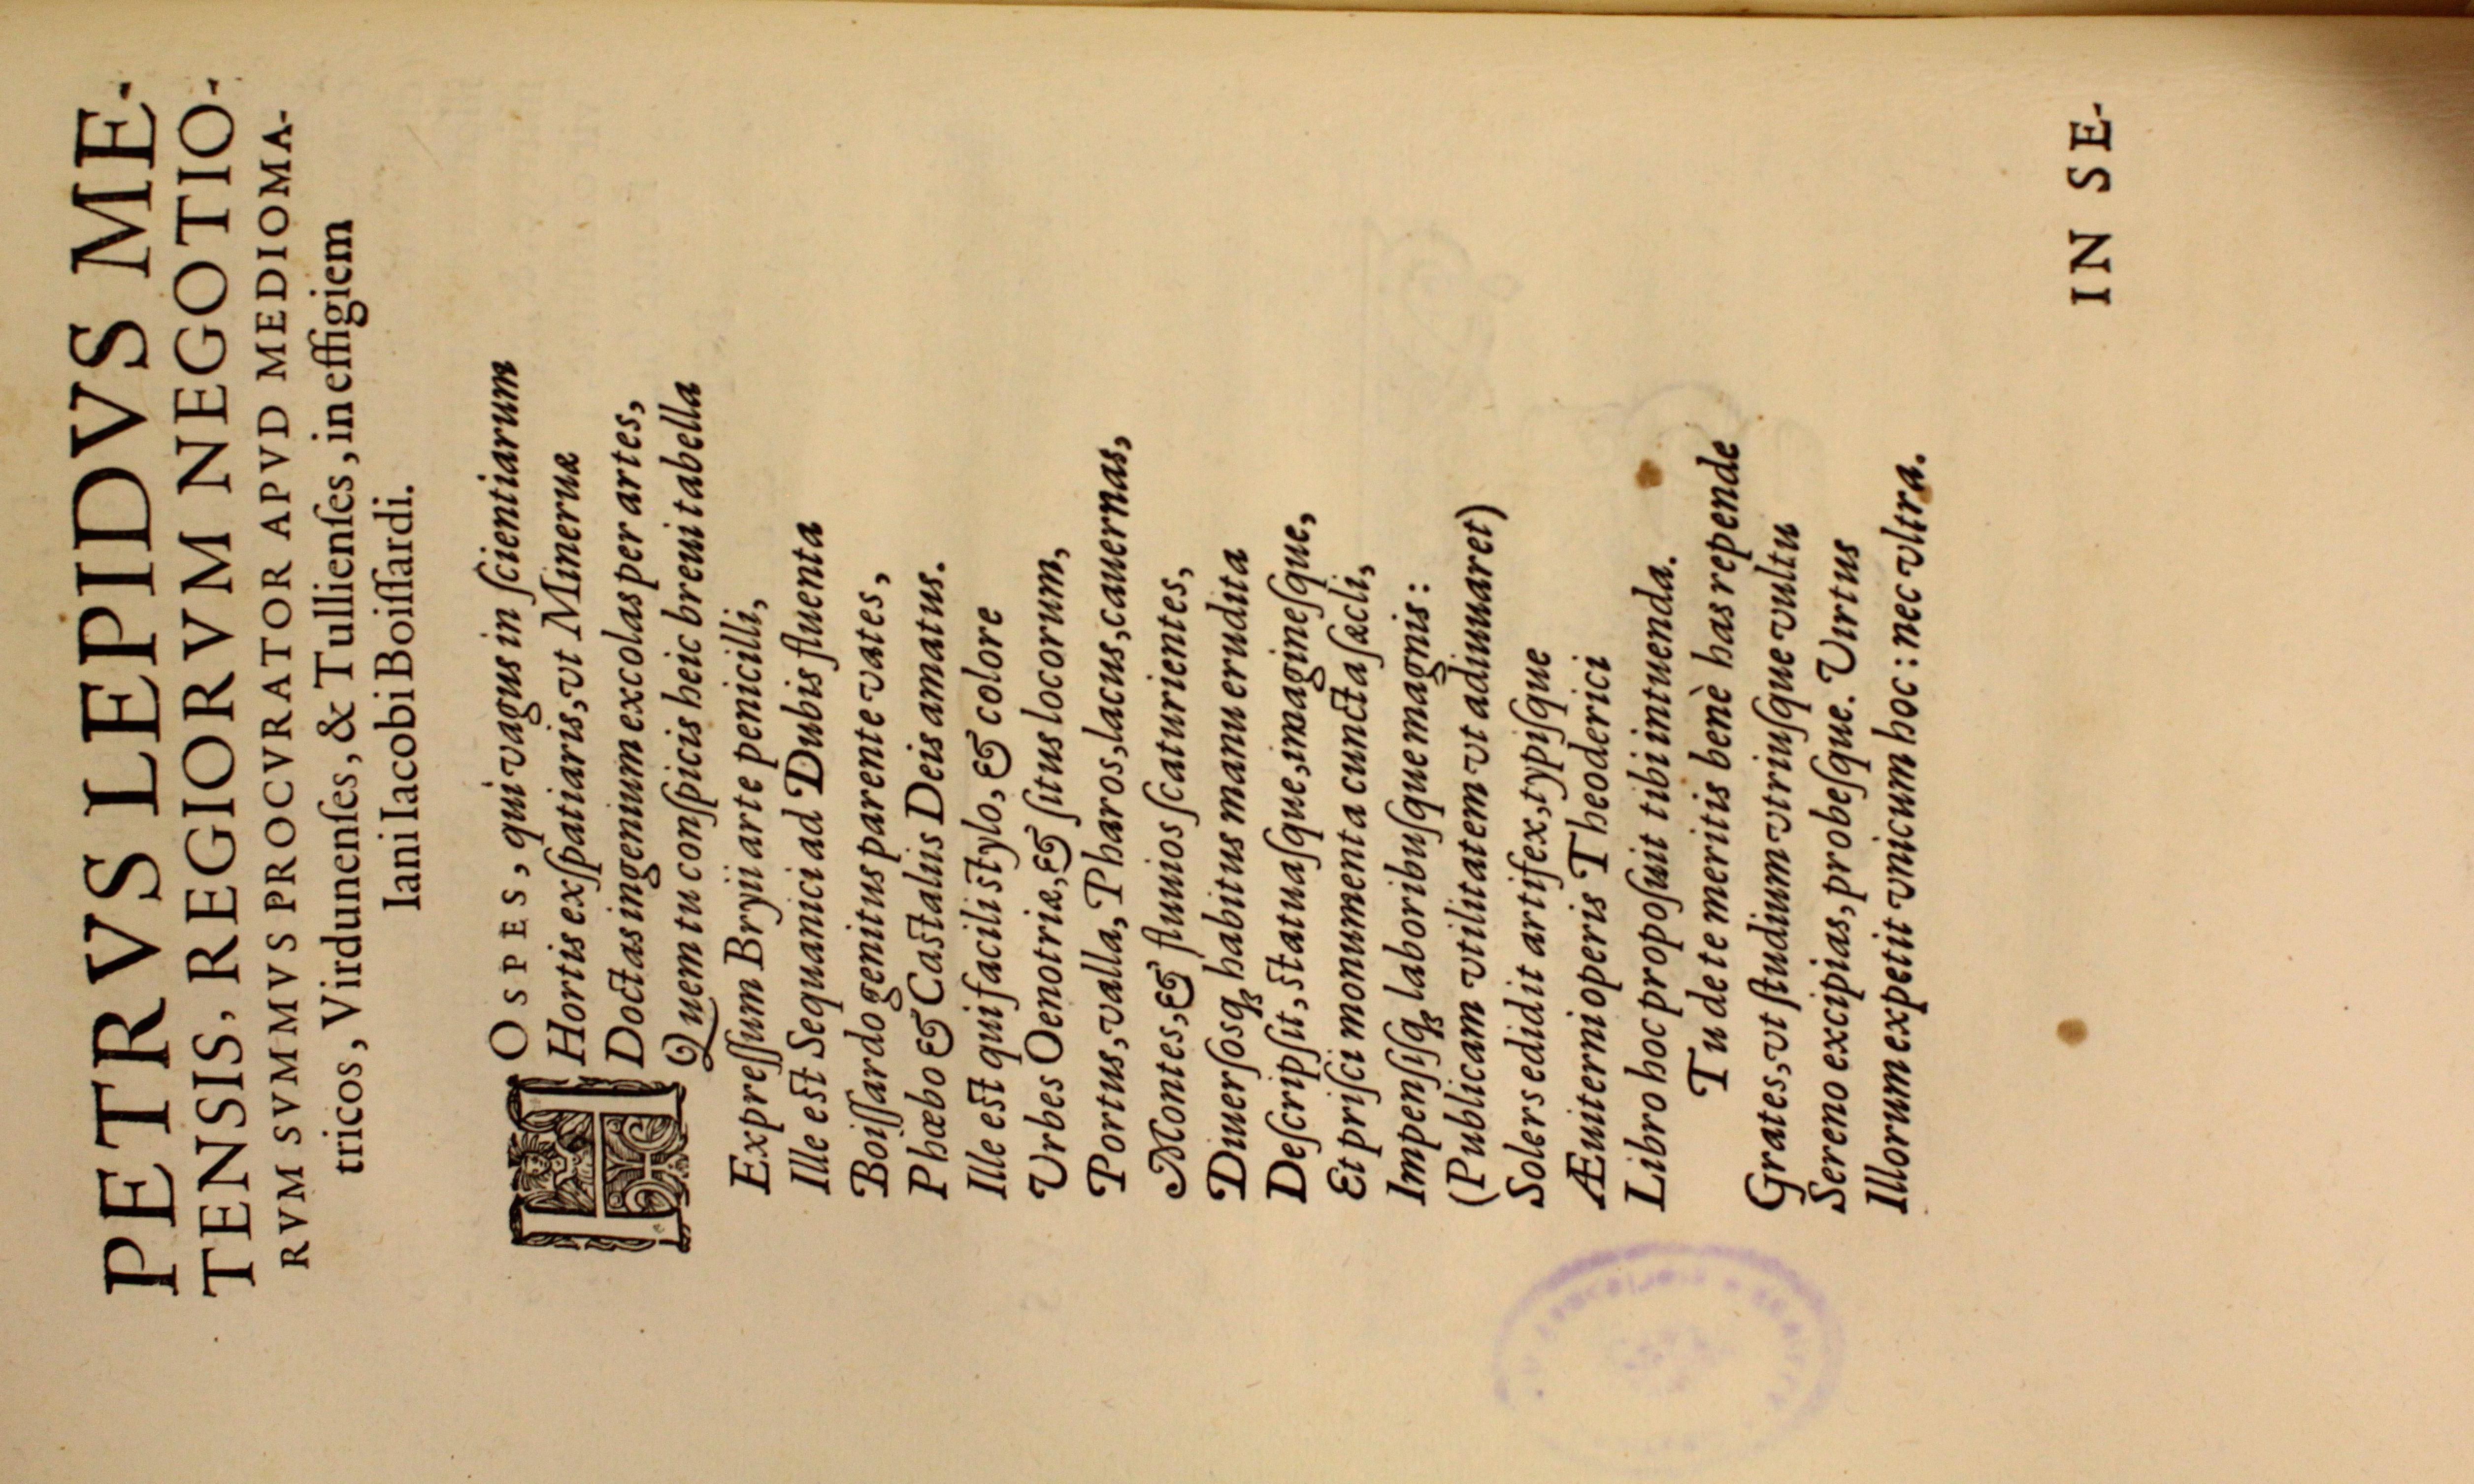 PETRVS LEPIDVS ME-
TENSIS, REGIORVM NEGOTIO-
RVM SVMMVS PROCVRATOR APVD MEDIOMA-
tricos, Virdunenſes, & Tullienſes, in effigiem
Iani Iacobi Boiſſardi.
HOSPES, qui vagus in ſcientiarum
Hortis exſpatiaris, vt Mineruæ
Doctas ingenium excolas per artes,
Quem tu conſpicis heic breui tabella
Expreſſum Bryii arte penicilli,
Ille est Sequanici ad Dubis fluenta
Boiſſardo genitus parente vates,
Phœbo & Castaliis Deis amatus.
Ille est qui facili stylo, & colore
Vrbes Oenotriæ, & ſitus locorum,
Portus, valla, Pharos, lacus, cauernas,
Montes, & fluuios ſcaturientes,
Diuerſosqꝫ habitus manu erudita
Deſcripſit, statuaſque, imagineſque,
Et priſci monumenta cuncta ſæcli,
Impenſiſqꝫ laboribuſque magnis:
(Publicam vtilitatem vt adiuuaret)
Solers edidit artifex, typiſque
Æuiterni operis Theoderici
Libro hoc propoſuit tibi intuenda.
Tu de te meritis benè has repende
Grates, vt ſtudium vtriuſque vultu
Sereno excipias, probeſque. Virtus
Illorum expetit vnicum hoc: nec vltra.
IN SE-